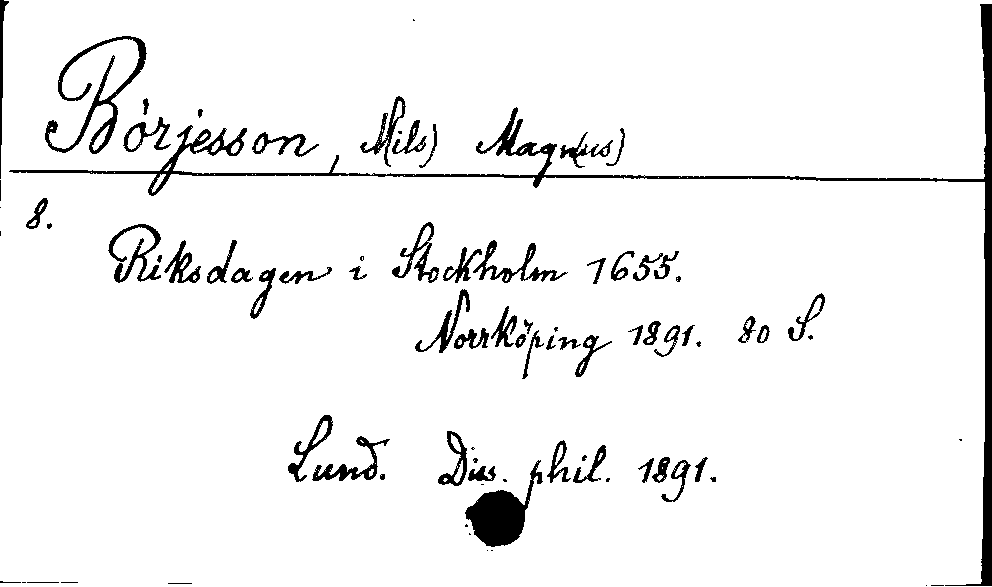 Börjesson, N(ils) Magn(us)
8.
Riksdagen i Stockholm 1655.
Norrköping 1891. 80 S.
Lund. Diss. phil. 1891.